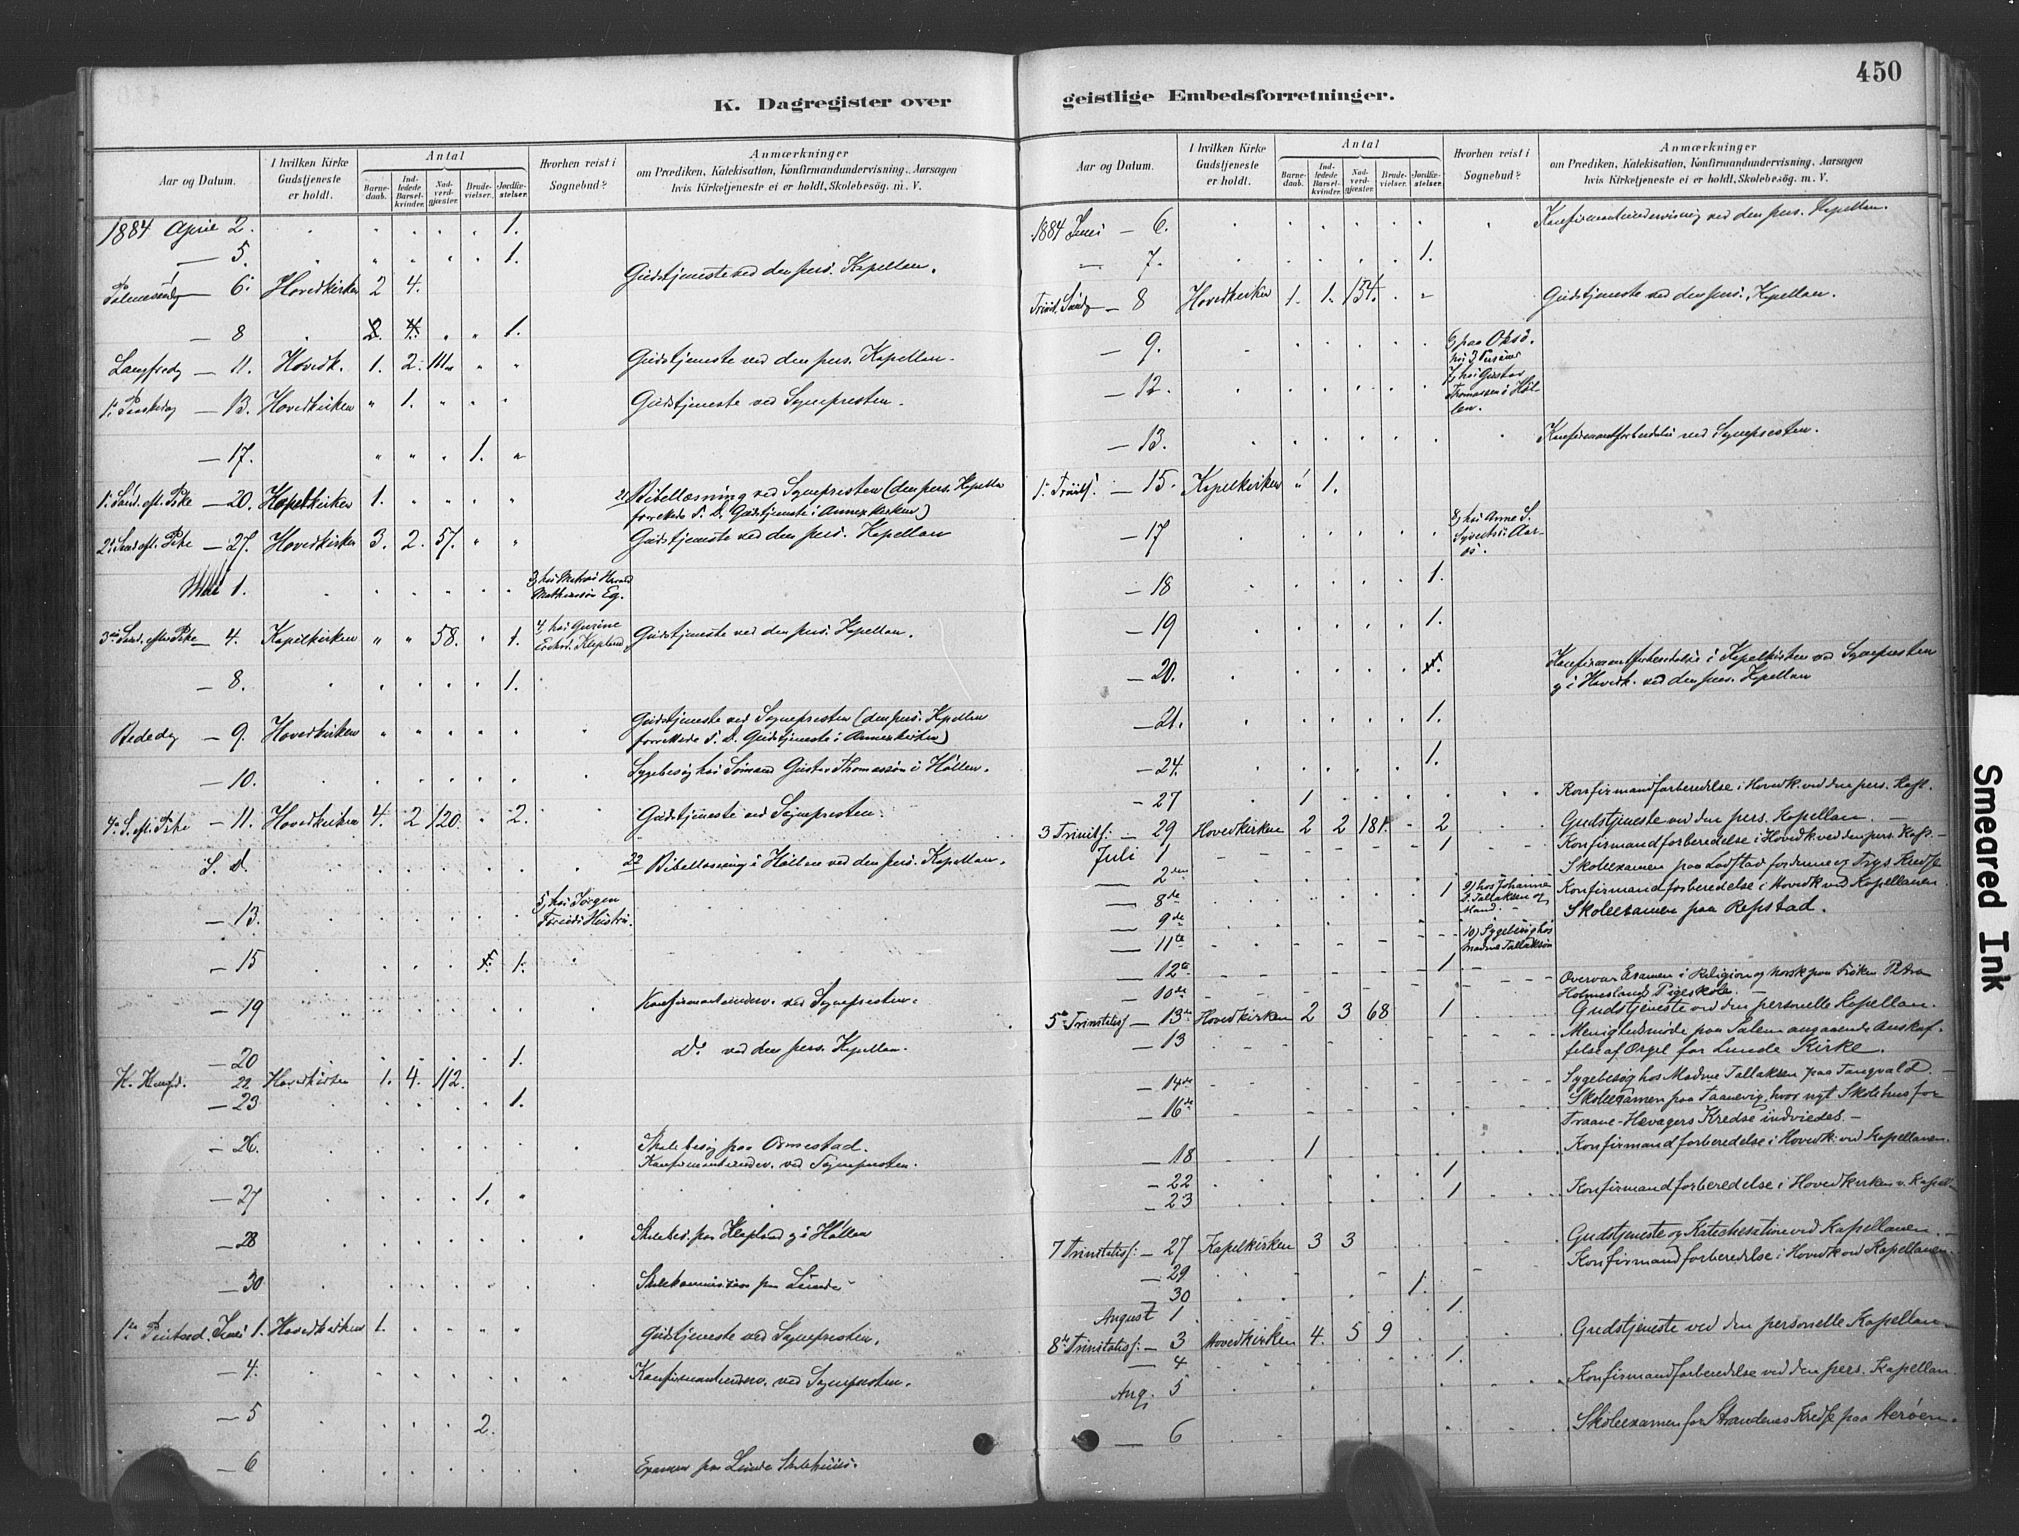 450
K. Dagregister over geistlige Embedsforretninger.
Aar og Datum. I hvilken Kirke Gudstjeneste er holdt. Antal Barnedaab. Indledede Barselkvinder. Nadverdgjæster. Brudevielser. Jordfæstelser. Hvorhen reist i Sognebud? Anmærkninger om Prædiken, Katekisation, Konfirmandundervisning, Aarsagen hvis Kirketjeneste ei er holdt, Skolebesøg. m. V.
1884 April 2. 1.
— 5. 1.
Palmesønd — 6. Hovedkirken 2 4. Gudstjeneste ved den pers. Kapellan.
— 8 2. 4. 1.
Langfredg — 11. Hovedk. 1. 2. 111. Gudstjeneste ved den pers. Kapellan.
1. Paaskedag — 13. Hovedkirken 1. Gudstjeneste ved Sognepresten.
— 17. 1.
1. Sønd. eft. Pske — 20. Kapelkirken 1. Bibellæsning ved Sognepresten (den pers. Kapellan
forrettede S. D. Gudstjeneste i Annexkirken)
2. Sønd eft. Pske — 27. Hovedkirken 3. 2. 57. Gudstjeneste ved den pers. Kapellan
Mai 1. 3, hos
Mathiesen Eg.
3die Sønd. efter Pske — 4. Kapelkirken 58. 1. 4, hos Gurine Klepland Gudstjeneste ved den pers. Kapellan.
— 8. 1.
Bededag — 9. Hovedkirken Gudstjeneste ved Sognepresten (den pers. Kapellan
forrettede S. D. Gudstjeneste i Annexkirken)
— 10. Sygebesøg hos Sømand Gustav Thomassen i Høllen.
4. S. eft. Pske — 11. Hovedkirken 4. 2 120. 2. Gudstjeneste ved Sognepresten.
S. D. Bibellæsning i Høllen ved den pers. Kapellan.
— 13. 5, hos Jørgen Hustru.
— 15 1. 1.
— 19 Konfirmantunderv. ved Sognepresten.
— 20 1. Do ved den pers. Kapellan.
22. Hovedkirken 1. 4. 112.
— 23 1.
— 26. Skolebesøg paa Ormestad.
Konfirmantunderv. ved Sognepresten.
— 27 1.
— 28 Skolebes. paa Klepland og i Høllen
— 30 Skolekommission paa Lunde
1ste Pintsed. Juni 1. Hovedkirken 1. Gudstjeneste ved Sognepresten.
— 4. Konfirmantunderv. ved Sognepresten.
— 5 2.
— 6 Examen paa Lunde Skolehuus.
Aar og Datum. I hvilken Kirke Gudstjeneste er holdt. Antal Barnedaab. Indledede Barselkvinder. Nadverdgjæster. Brudevielser. Jordfæstelser. Hvorhen reist i Sognebud? Anmærkninger om Prædiken, Katekisation, Konfirmandundervisning, Aarsagen hvis Kirketjeneste ei er holdt, Skolebesøg. m. V.
1884 Juni — 6. Konfirmantundervisning ved den pers. Kapellan.
— 7. 1.
Trinit. Sønd — 8 Hovedkirken 1. 1. 154. Gudstjeneste ved den pers. Kapellan.
— 9. 6, paa Oksø.
— 12. 7, hos Gustav Thomassen i Høllen.
— 13. Konfirmantforberedelse ved Sognepresten.
1. Trinits. — 15. Kapelkirken 1.
— 17 8, hos Anne S.
— 18 1.
— 19 1.
— 20. Konfirmantforberedelse i Kapelkirken ved Sognepresten
og i Hovedk. ved den pers. Kapellan
— 21. 1.
— 24. 1.
— 27 1 Konfirmandforberedelse i Hovedk. ved den pers. Kap.
3 Trinits: — 29 Hovedkirken 2 2 181. 2 Gudstjeneste ved den pers. Kapellan. —
Juli 1 1 Konfirmandforberedelse i Hovedk ved den pers. Kap. —
— 2den Skoleexamen paa Lodstad for denne og Trys Kredse
— 8de 1 9) hos Johanne Tallaksen og Mand. Konfirmandforberedelse i Hovedk ved Kapellanen
— 9de Skoleexamen paa Repstad.
— 11te 10) Sygebesøg hos Madme Tallaksen
— 12te 1
— 10de Overvar Examen i Religion og norsk paa Frøken Petra
Holmeslands Pigeskole. —
5te Trinitatis — 13de Hovedkirken 2 3 68 1 Gudstjeneste ved den personelle Kapellan.
— 13 Menighedsmøde paa Salem angaaende Anskaf-
felse af Orgel for Lunde Kirke.
— 14de Sygebesøg hos Madme Tallaksen paa Tangvald. —
— 16de Skoleexamen paa Taanevig, hvor nyt Skolehus for
Traane-Hævagers Kredse indviedes. —
— 18 1 Konfirmandforberedelse i Hovedk. ved Kapellanen.
— 22 1
— 23 1 Konfirmandforberedelse i Hovedkirken v. Kapell.
7 Trinitatis: — 27 Kapelkirken 3 3 Gudstjeneste og Katechesation ved Kapellanen. —
— 29 Konfirmandforberedelse i Hovedk ved Kapellanen.
— 30 1.
August 1. 1.
8de Trinitatis: — 3 Hovedkirken 4. 5 9 Gudstjeneste ved den personelle Kapellan.
— 4 1.
Aug. 5 Konfirmandforberedelse ved den pers. Kapellan.
— 6 Skoleexamen for Strandenes Kredse paa Herøen.
Smeared Ink